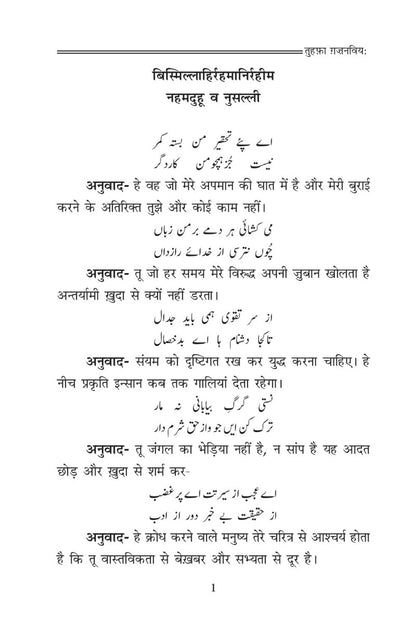 तुहफ़ा ग़ज़नविय:
बिस्मिल्लाहिर्रहमानिर्रहीम
नहमदुहू व नुसल्ली
اے پئے تحقیر من بستہ کمر
نیست جُز ہجومن کاردگر
अनुवाद- हे वह जो मेरे अपमान की घात में है और मेरी बुराई
करने के अतिरिक्त तुझे और कोई काम नहीं।
می کشائی ہر دمے برمن زباں
چُوں نترسی از خدائے رازداں
अनुवाद- तू जो हर समय मेरे विरुद्ध अपनी ज़ुबान खोलता है
अन्तर्यामी ख़ुदा से क्यों नहीं डरता।
از سر تقویٰ ہمی باید جدال
تاکجا دشنام ہا اے بدخصال
अनुवाद- संयम को दृष्टिगत रख कर युद्ध करना चाहिए। हे
नीच प्रकृति इन्सान कब तक गालियां देता रहेगा।
نستی گرگِ بیابانی نہ مار
ترک کن ایں جو واز حق شرم دار
अनुवाद- तू जंगल का भेड़िया नहीं है, न सांप है यह आदत
छोड़ और ख़ुदा से शर्म कर-
اے عجب از سیرتت اے پر غضب
از حقیقت بے خبر دور از ادب
अनुवाद- हे क्रोध करने वाले मनुष्य तेरे चरित्र से आश्चर्य होता
है कि तू वास्तविकता से बेख़बर और सभ्यता से दूर है।
1